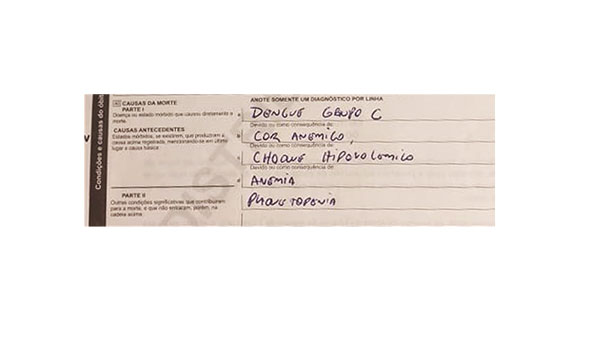 Condições e causas do óbi
40 CAUSAS DA MORTE
PARTE I
Doença ou estado mórbido que causou diretamente a morte.
CAUSAS ANTECEDENTES
Estados mórbidos, se existirem, que produziram a causa acima registrada, mencionando-se em último lugar a causa básica
PARTE II
Outras condições significativas que contribuíram para a morte, e que não entraram, porém, na cadeia acima.
ANOTE SOMENTE UM DIAGNÓSTICO POR LINHA
a DENGUE GRUPO C
Devido ou como consequência de:
b COR ANEMICO,
Devido ou como consequência de:
c CHOQUE HIPOVOLEMICO
Devido ou como consequência de:
d ANEMIA